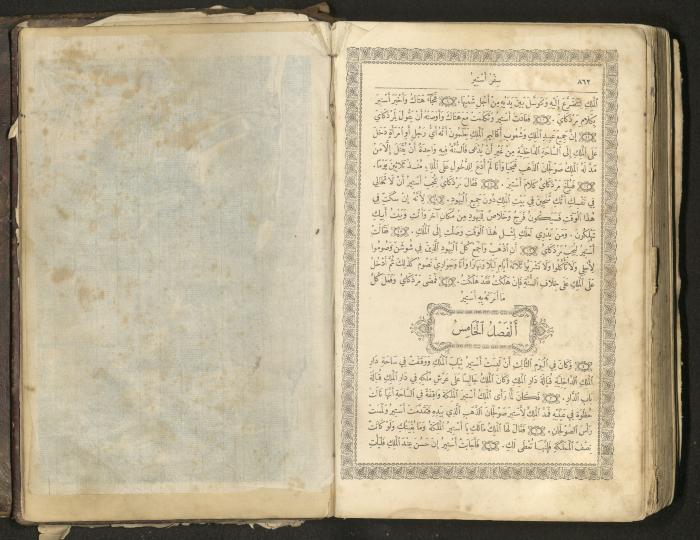 سفر أستير
٨٦٢
الملك لتتضرع إليه وتتوسل بين يديه من أجل شعبها. فجاء هتاك وأخبر أستير
بكلام مردكاي. فعادت أستير وتكلمت مع هتاك وأوصته أن يقول لمردكاي
إن جميع عبيد الملك وشعوب أقاليم الملك يعلمون أنه أي رجل أو امرأة دخل
على الملك إلى الساحة الداخلية من غير أن يدعى فالسنة فيه واحدة أن يقتل إلا من
مد له الملك صولجان الذهب فيحيا وأنا لم أدع للدخول على الملك منذ ثلاثين يوما.
فبلغ مردكاي كلام أستير. فقال مردكاي تجب أستير أن لا تخالي
في نفسك أنك تنجين في بيت الملك دون جميع اليهود. لأنه إن سكت في
هذا الوقت فسيكون فرج وخلاص لليهود من مكان آخر وأنت وبيت أبيك
تهلكون. ومن يدري لعلك لمثل هذا الوقت وصلت إلى الملك. فقالت
أستير ليجب مردكاي أن اذهب واجمع كل اليهود الذين في شوشن وصوموا
لأجلي ولا تأكلوا ولا تشربوا ثلاثة أيام ليلا ونهارا وأنا وجواري نصوم كذلك ثم أدخل
على الملك على خلاف السنة فإن هلكت فقد هلكت. فمضى مردكاي وفعل كل
ما أمرته به أستير
الفصل الخامس
وكان في اليوم الثالث أن لبست أستير ثياب الملك ووقفت في ساحة دار
الملك الداخلية قبالة دار الملك وكان الملك جالسا على عرش ملكه في دار الملك قبالة
باب الدار. فكان لما رأى الملك أستير الملكة واقفة في الساحة أنها نالت
حظوة في عينيه فمد الملك لأستير صولجان الذهب الذي بيده فتقدمت أستير ولمست
رأس الصولجان. فقال لها الملك مالك يا أستير الملكة وما بغيتك ولو كانت
نصف المملكة فإنها تعطى لك. فأجابت أستير إن حسن عند الملك فليأت